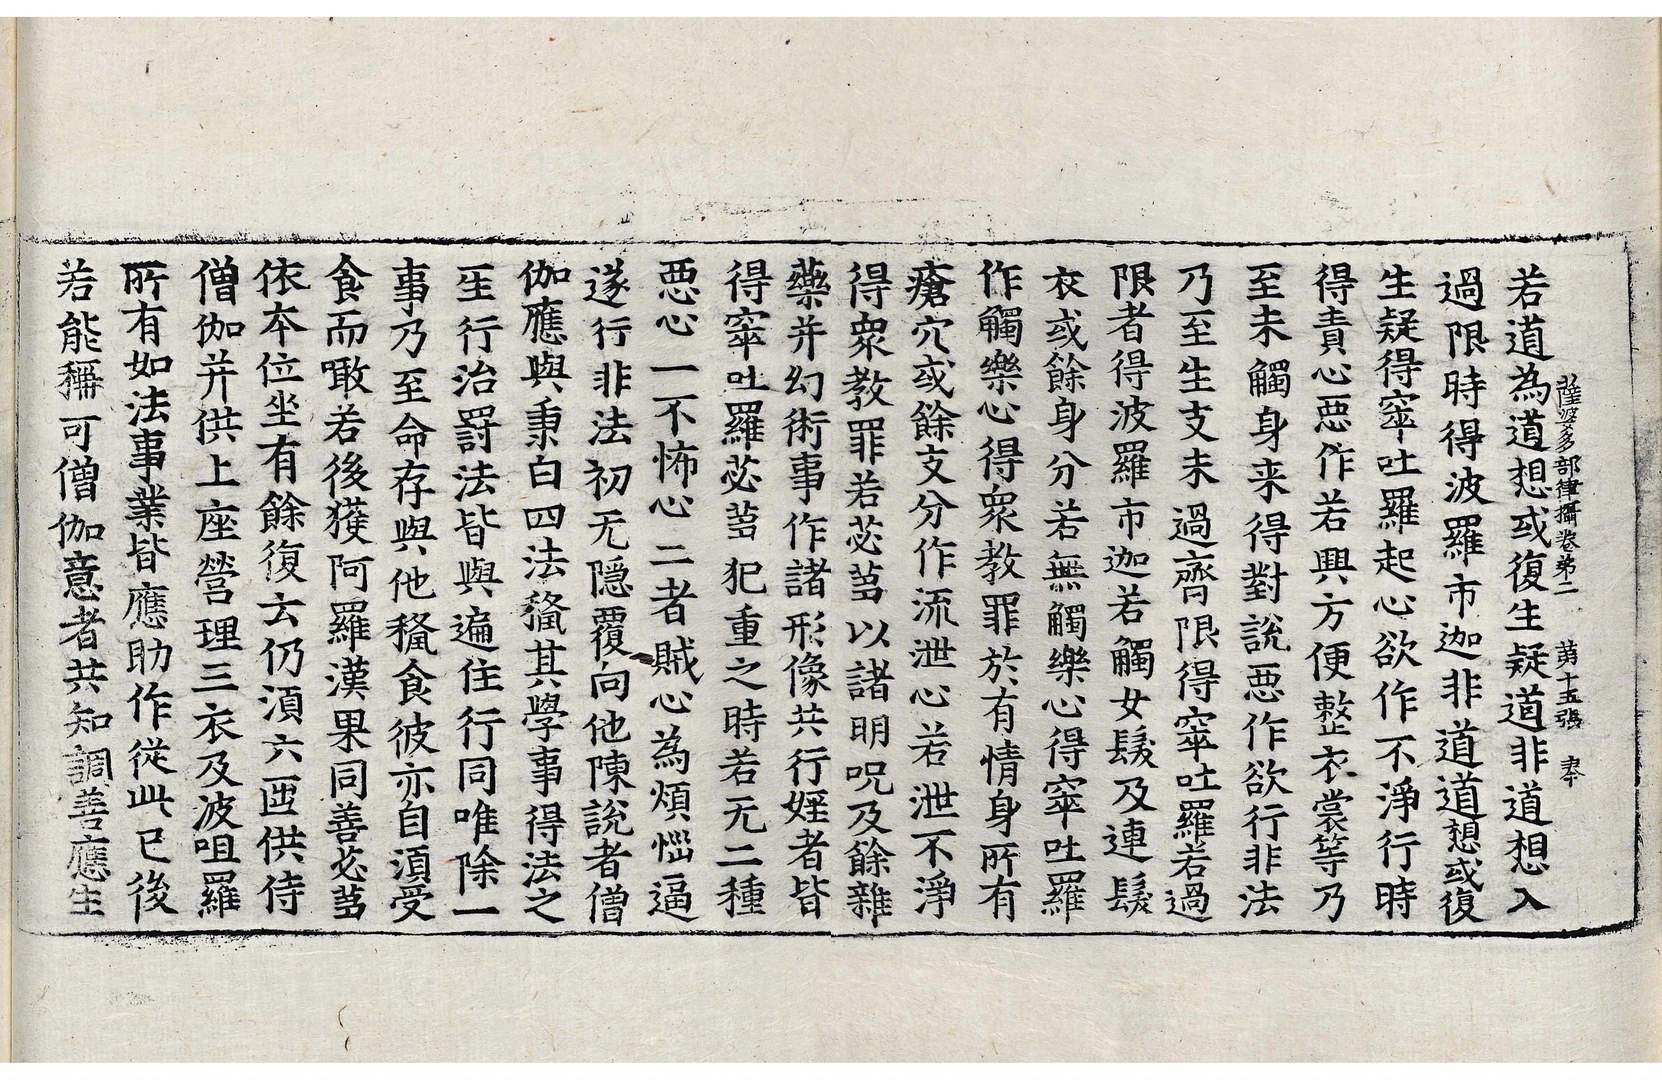 薩婆多部律攝卷第二　第十五張　奉
若道為道想或復生疑道非道想入
過限時得波羅市迦非道道想或復
生疑得窣吐羅起心欲作不淨行時
得責心惡作若興方便整衣裳等乃
至未觸身来得對說惡作欲行非法
乃至生支未過齊限得窣吐羅若過
限者得波羅市迦若觸女髮及連髮
衣或餘身分若無觸樂心得窣吐羅
作觸樂心得衆教罪於有情身所有
瘡穴或餘支分作流泄心若泄不淨
得衆教罪若苾蒭以諸明呪及餘雜
藥并幻術事作諸形像共行婬者皆
得窣吐羅苾蒭犯重之時若无二種
惡心一不怖心二者賊心為煩惱逼
遂行非法初无隱覆向他陳說者僧
伽應與秉白四法䅻其學事得法之
後行治罰法皆與遍住行同唯除一
事乃至命存與他䅻食彼亦自須受
食而噉若後獲阿羅漢果同善苾蒭
依本位坐有餘復云仍須六迊供侍
僧伽并供上座營理三衣及波呾羅
所有如法事業皆應助作從此已後
若能稱可僧伽意者共知調善應生